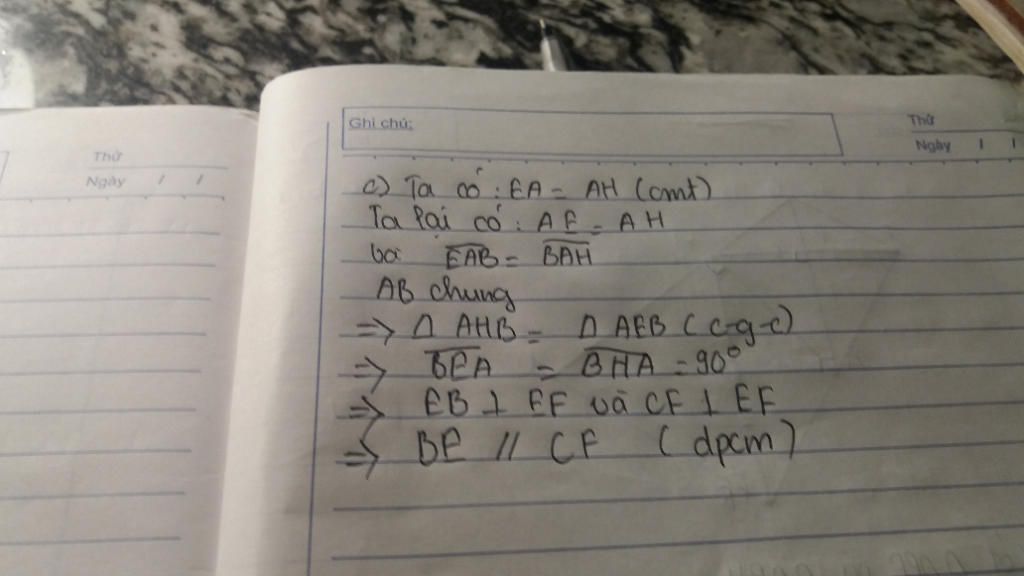 Thứ
Ngày / /
Ghi chú:
Thứ
Ngày / /
c) Ta có : EA = AH (cmt)
Ta lại có : AE = AH
và EAB = BAH
AB chung
=> Δ AHB = Δ AEB (c-g-c)
=> BEA = BHA = 90°
=> EB ⊥ EF và CF ⊥ EF
=> BE // CF (dpcm)